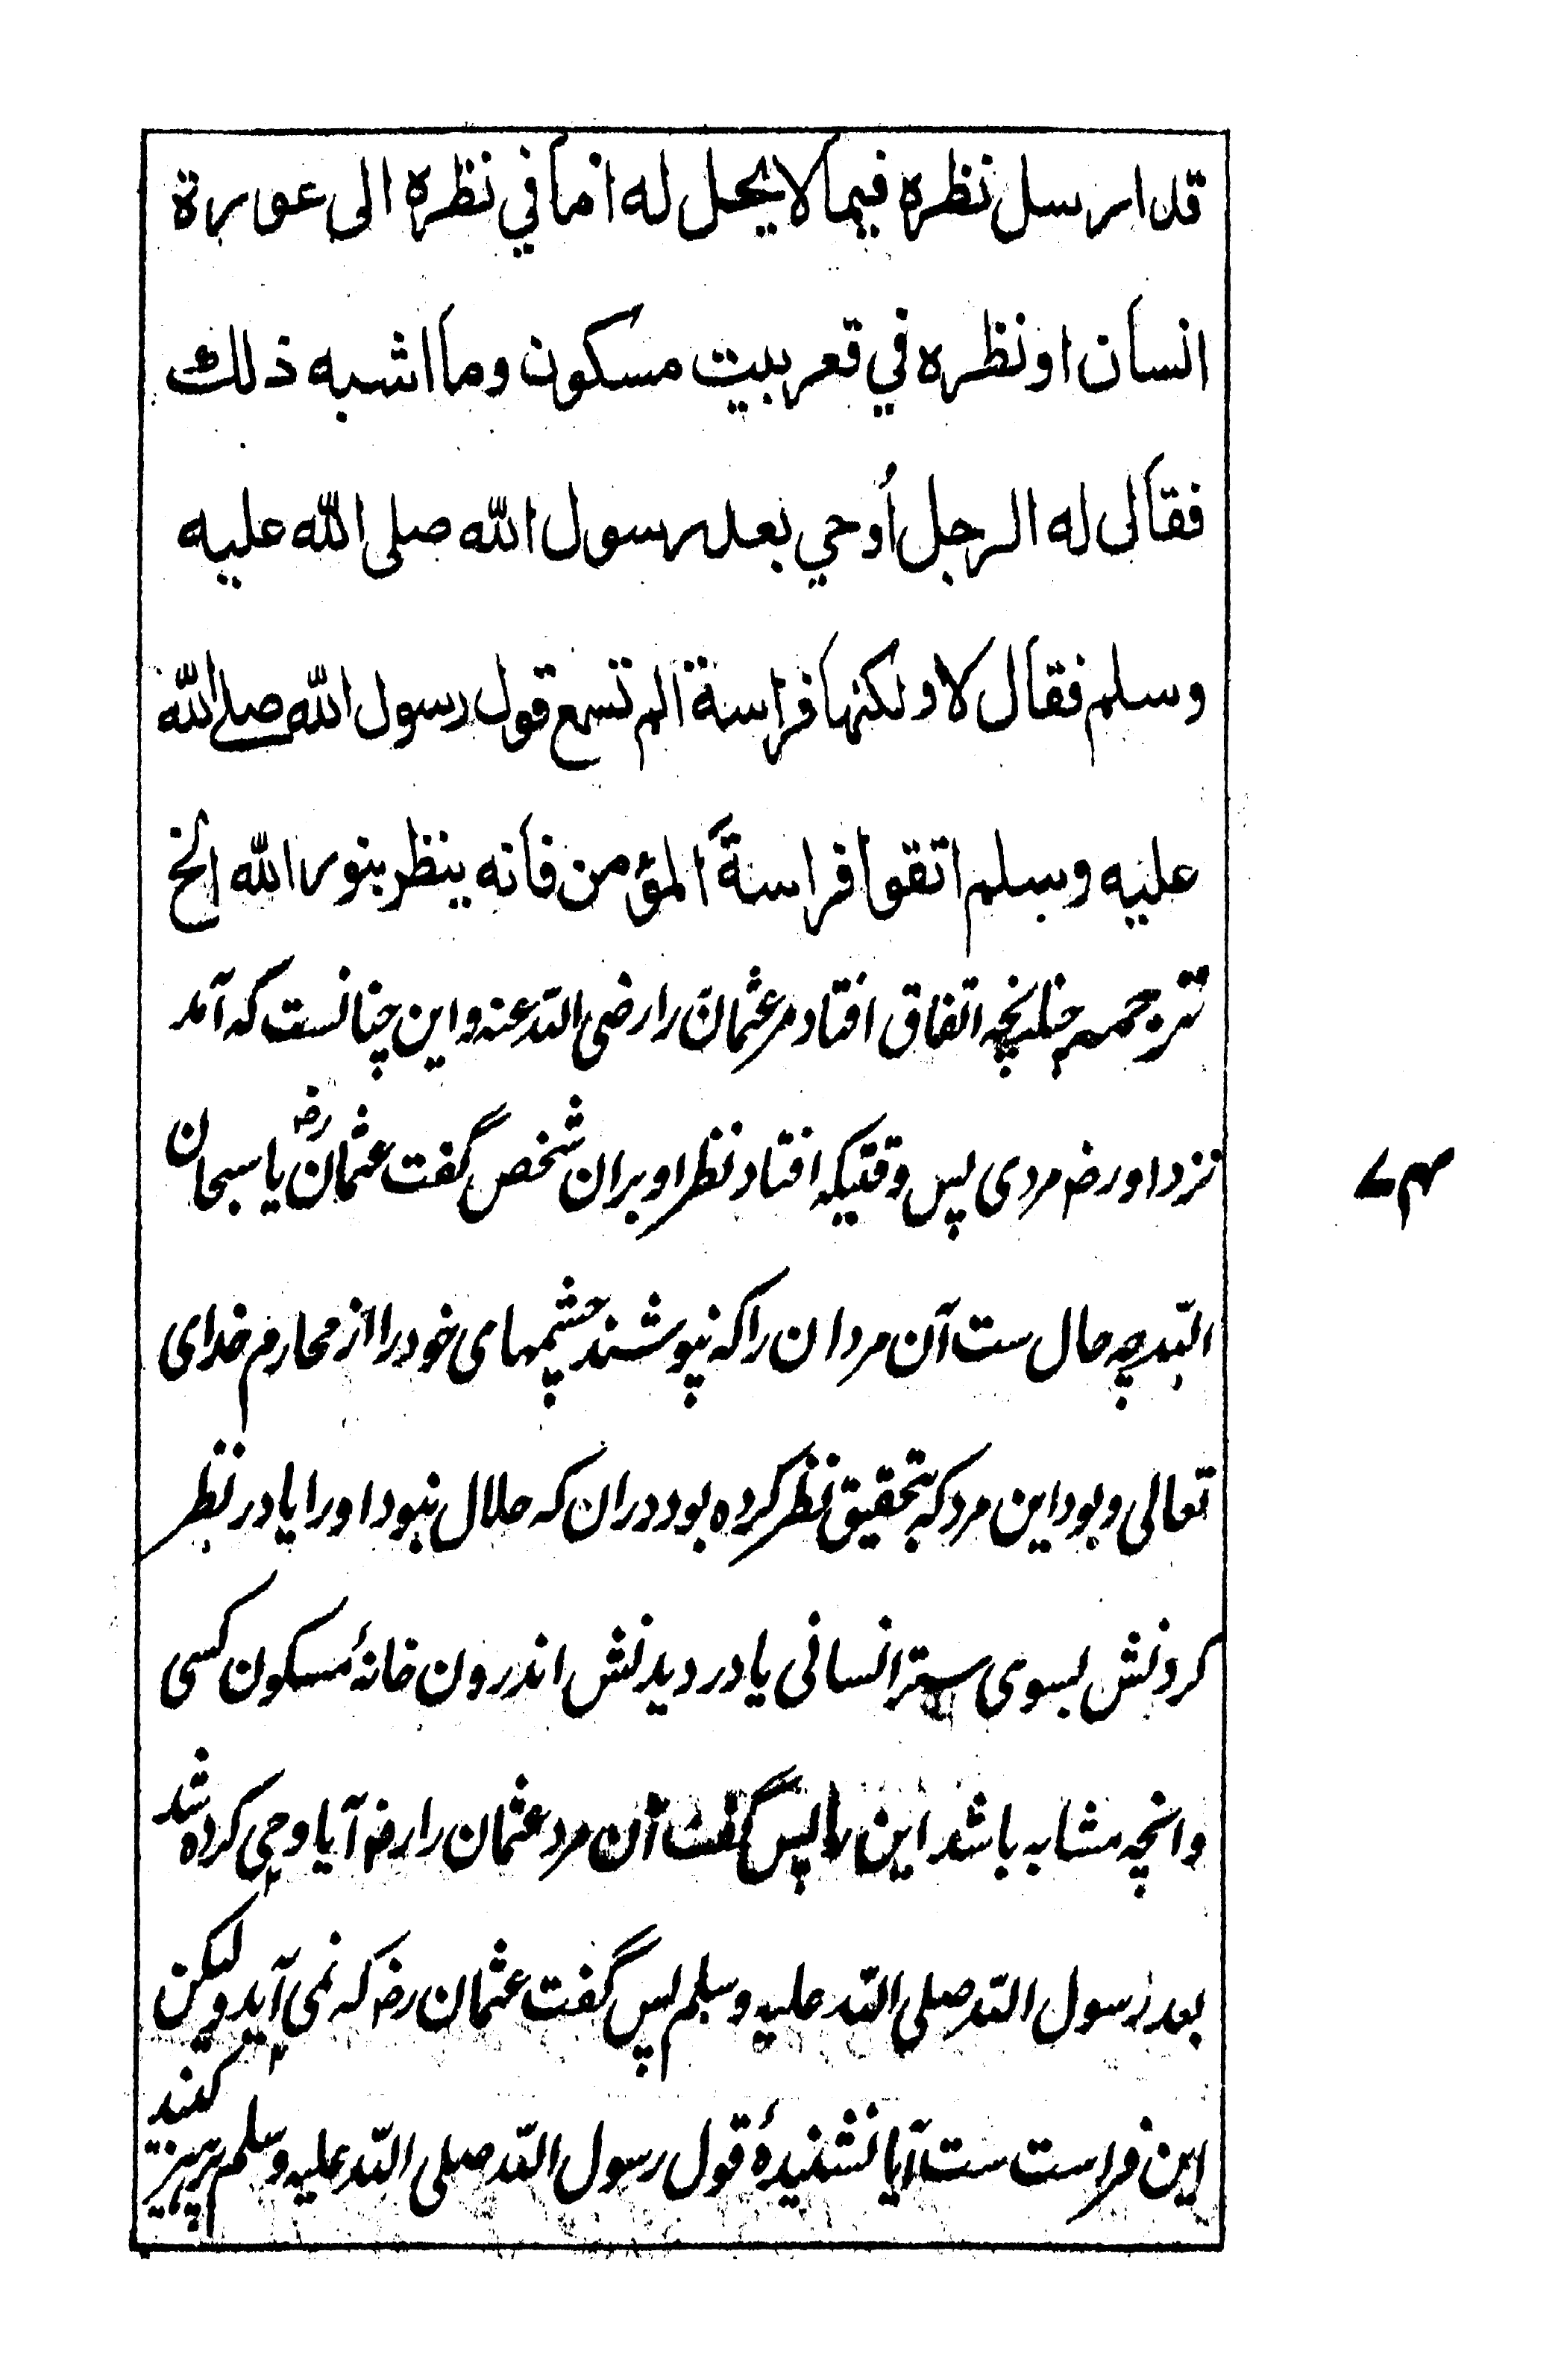 قد ارسل نظره فيما لا يحل له اما في نظره الى عورة
انسان او نظره في قعر بيت مسكون وما اشبه ذلك
فقال له الرجل أوحي بعد رسول الله صلى الله عليه
وسلم فقال لا ولكنها فراسة الم تسمع قول رسول الله صلے الله
عليه وسلم اتقوا فراسة المؤمن فانه ينظر بنور الله الخ
ترجمہ چنانچہ اتفاق افتاد مر عثمان را رضی اللہ عنہ و این چنانست کہ آمد
نزد او رضہ مردی پس وقتیکہ افتاد نظر او بران شخص گفت عثمان رضہ یا سبحان
اللہ چہ حال ست آن مردان را کہ نپوشند چشمہای خود را از محارم خدای
تعالی و بود این مرد کہ بتحقیق نظر کردہ بود دران کہ حلال نبود او را یا در نظر
کردنش بسوی ستر انسانی یا در دیدنش اندرون خانۂ مسکون کسی
و انچہ مشابہ باشد این را پس گفت آن مرد عثمان را رضہ آیا وحی کردہ شد
بعد رسول اللہ صلی اللہ علیہ وسلم پس گفت عثمان رضہ کہ نمی آید ولیکن
این فراست ست آیا نشنیدۂ قول رسول اللہ صلی اللہ علیہ وسلم پرہیز کنید